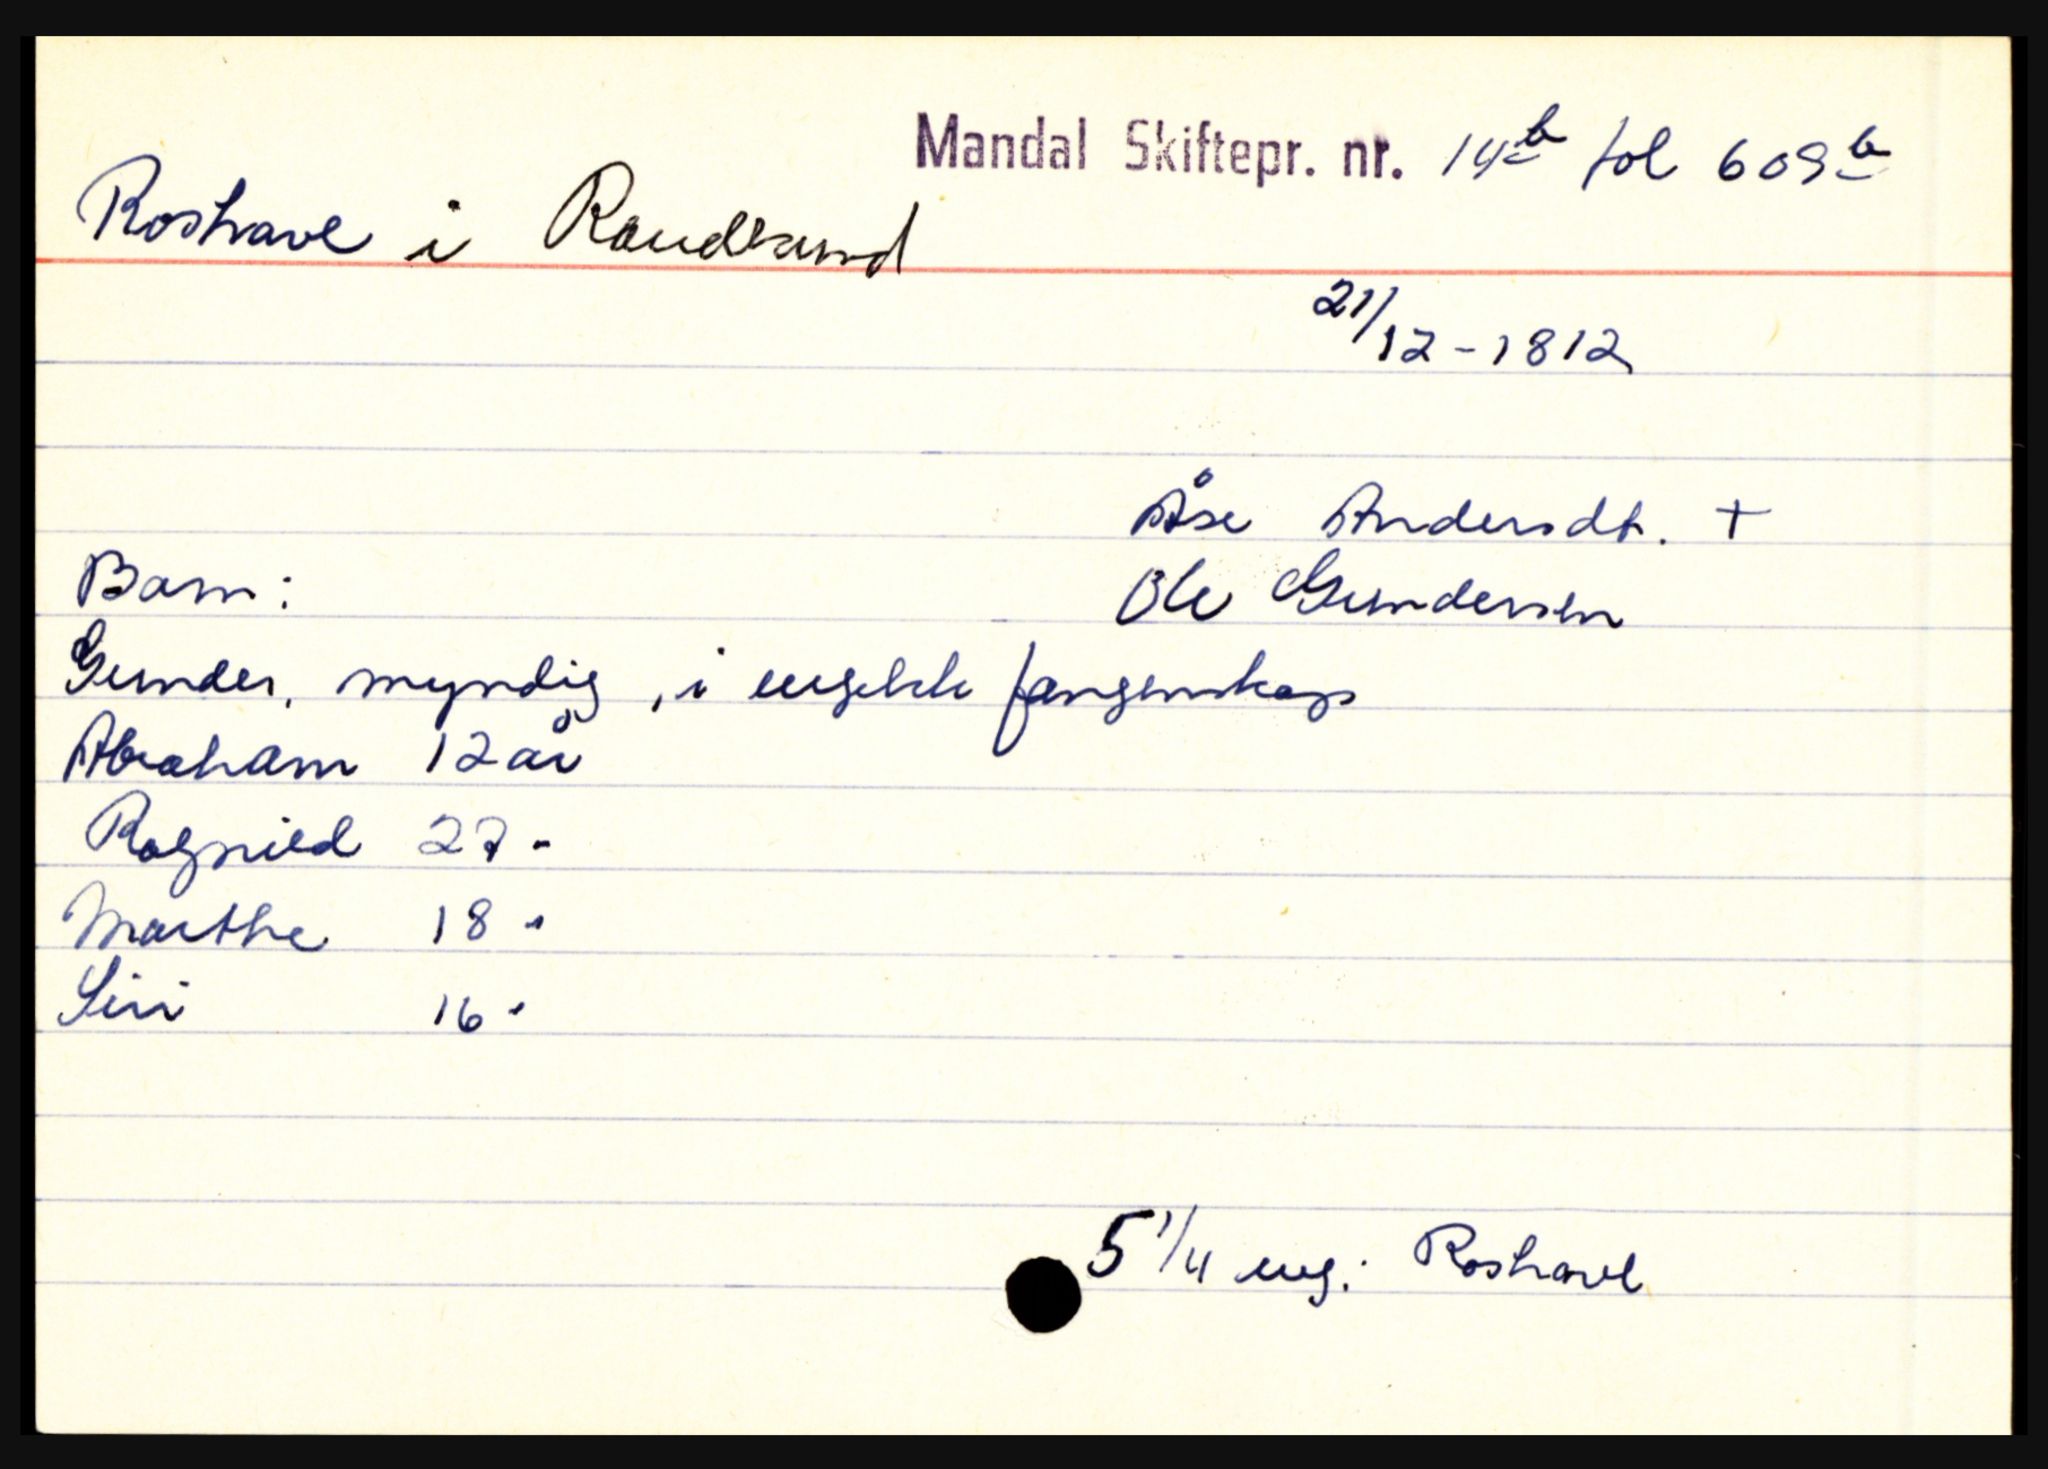 Mandal Skiftepr. nr. 14b fol 609b
Roshave i Randesund
21/12-1812
Åse Andersdt. +
Barn:
Ole Gundersen
Gunder, myndig, i engelsk fangenskap
Abraham 12 år
Ragnild 27 "
Marthe 18 "
Siri 16 "
5 1/4 eng. Roshave